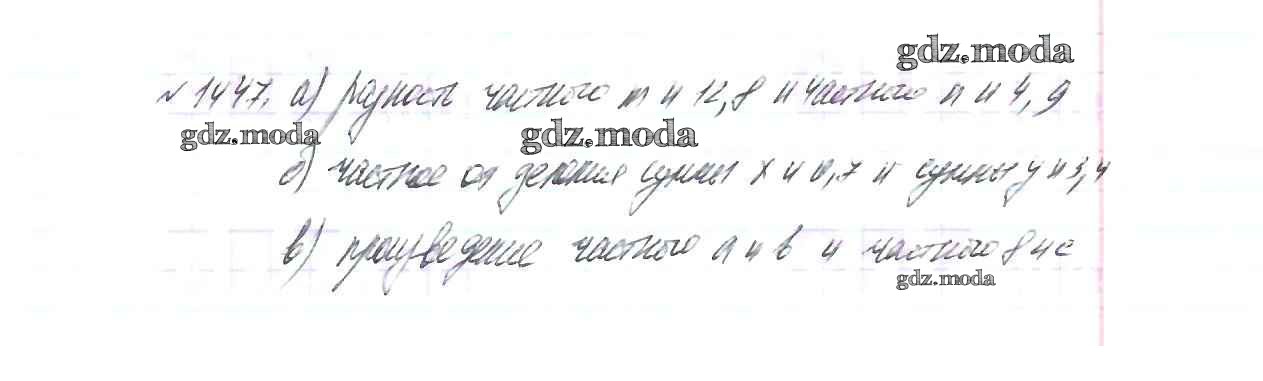 gdz.moda
№ 1447. а) разность частного m и 12,8 и частного n и 4,9
gdz.moda gdz.moda
б) частное от деления суммы x и 0,7 и суммы y и 3,4
в) произведение частного a и b и частного 8 и c
gdz.moda